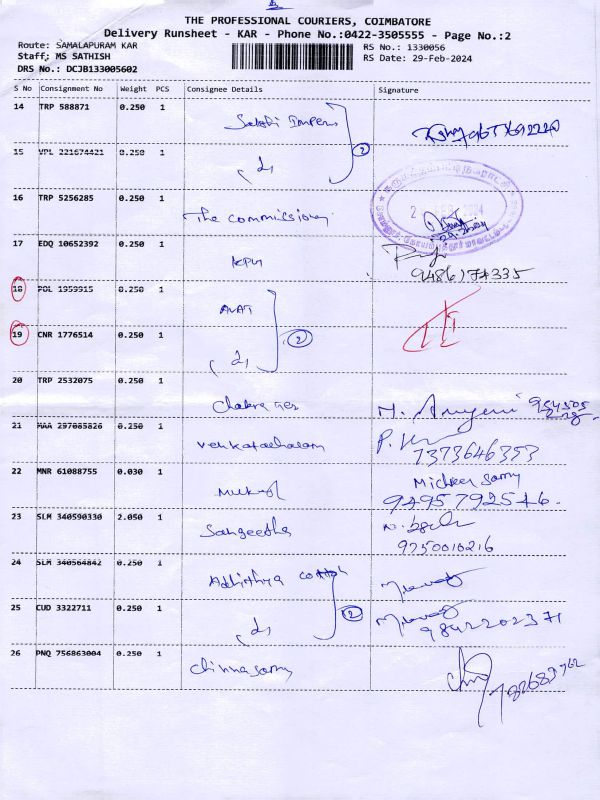 THE PROFESSIONAL COURIERS, COIMBATORE
Delivery Runsheet - KAR - Phone No.:0422-3505555 - Page No.:2
Route: SAMALAPURAM KAR
RS No.: 1330056
Staff: MS SATHISH
RS Date: 29-Feb-2024
DRS No.: DCJB133005602
S No Consignment No Weight PCS Consignee Details Signature
14 TRP 588871 0.250 1
2
15 VPL 221674421 0.250 1
16 TRP 5256285 0.250 1
The commissioner
17 EDQ 10652392 0.250 1
KPN
9486174335
18 POL 1959915 0.250 1
19 CNR 1776514 0.250 1
2
20 TRP 2532075 0.250 1
21 MAA 297085826 0.250 1
Venkatachalam
7373646353
22 MNR 61088755 0.030 1
9495792546
23 SLM 340590330 2.050 1
Sangeetha
9750010216
24 SLM 340564842 0.250 1
Adhithya
2
25 CUD 3322711 0.250 1
9842202371
26 PNQ 756863004 0.250 1
Chinnasamy